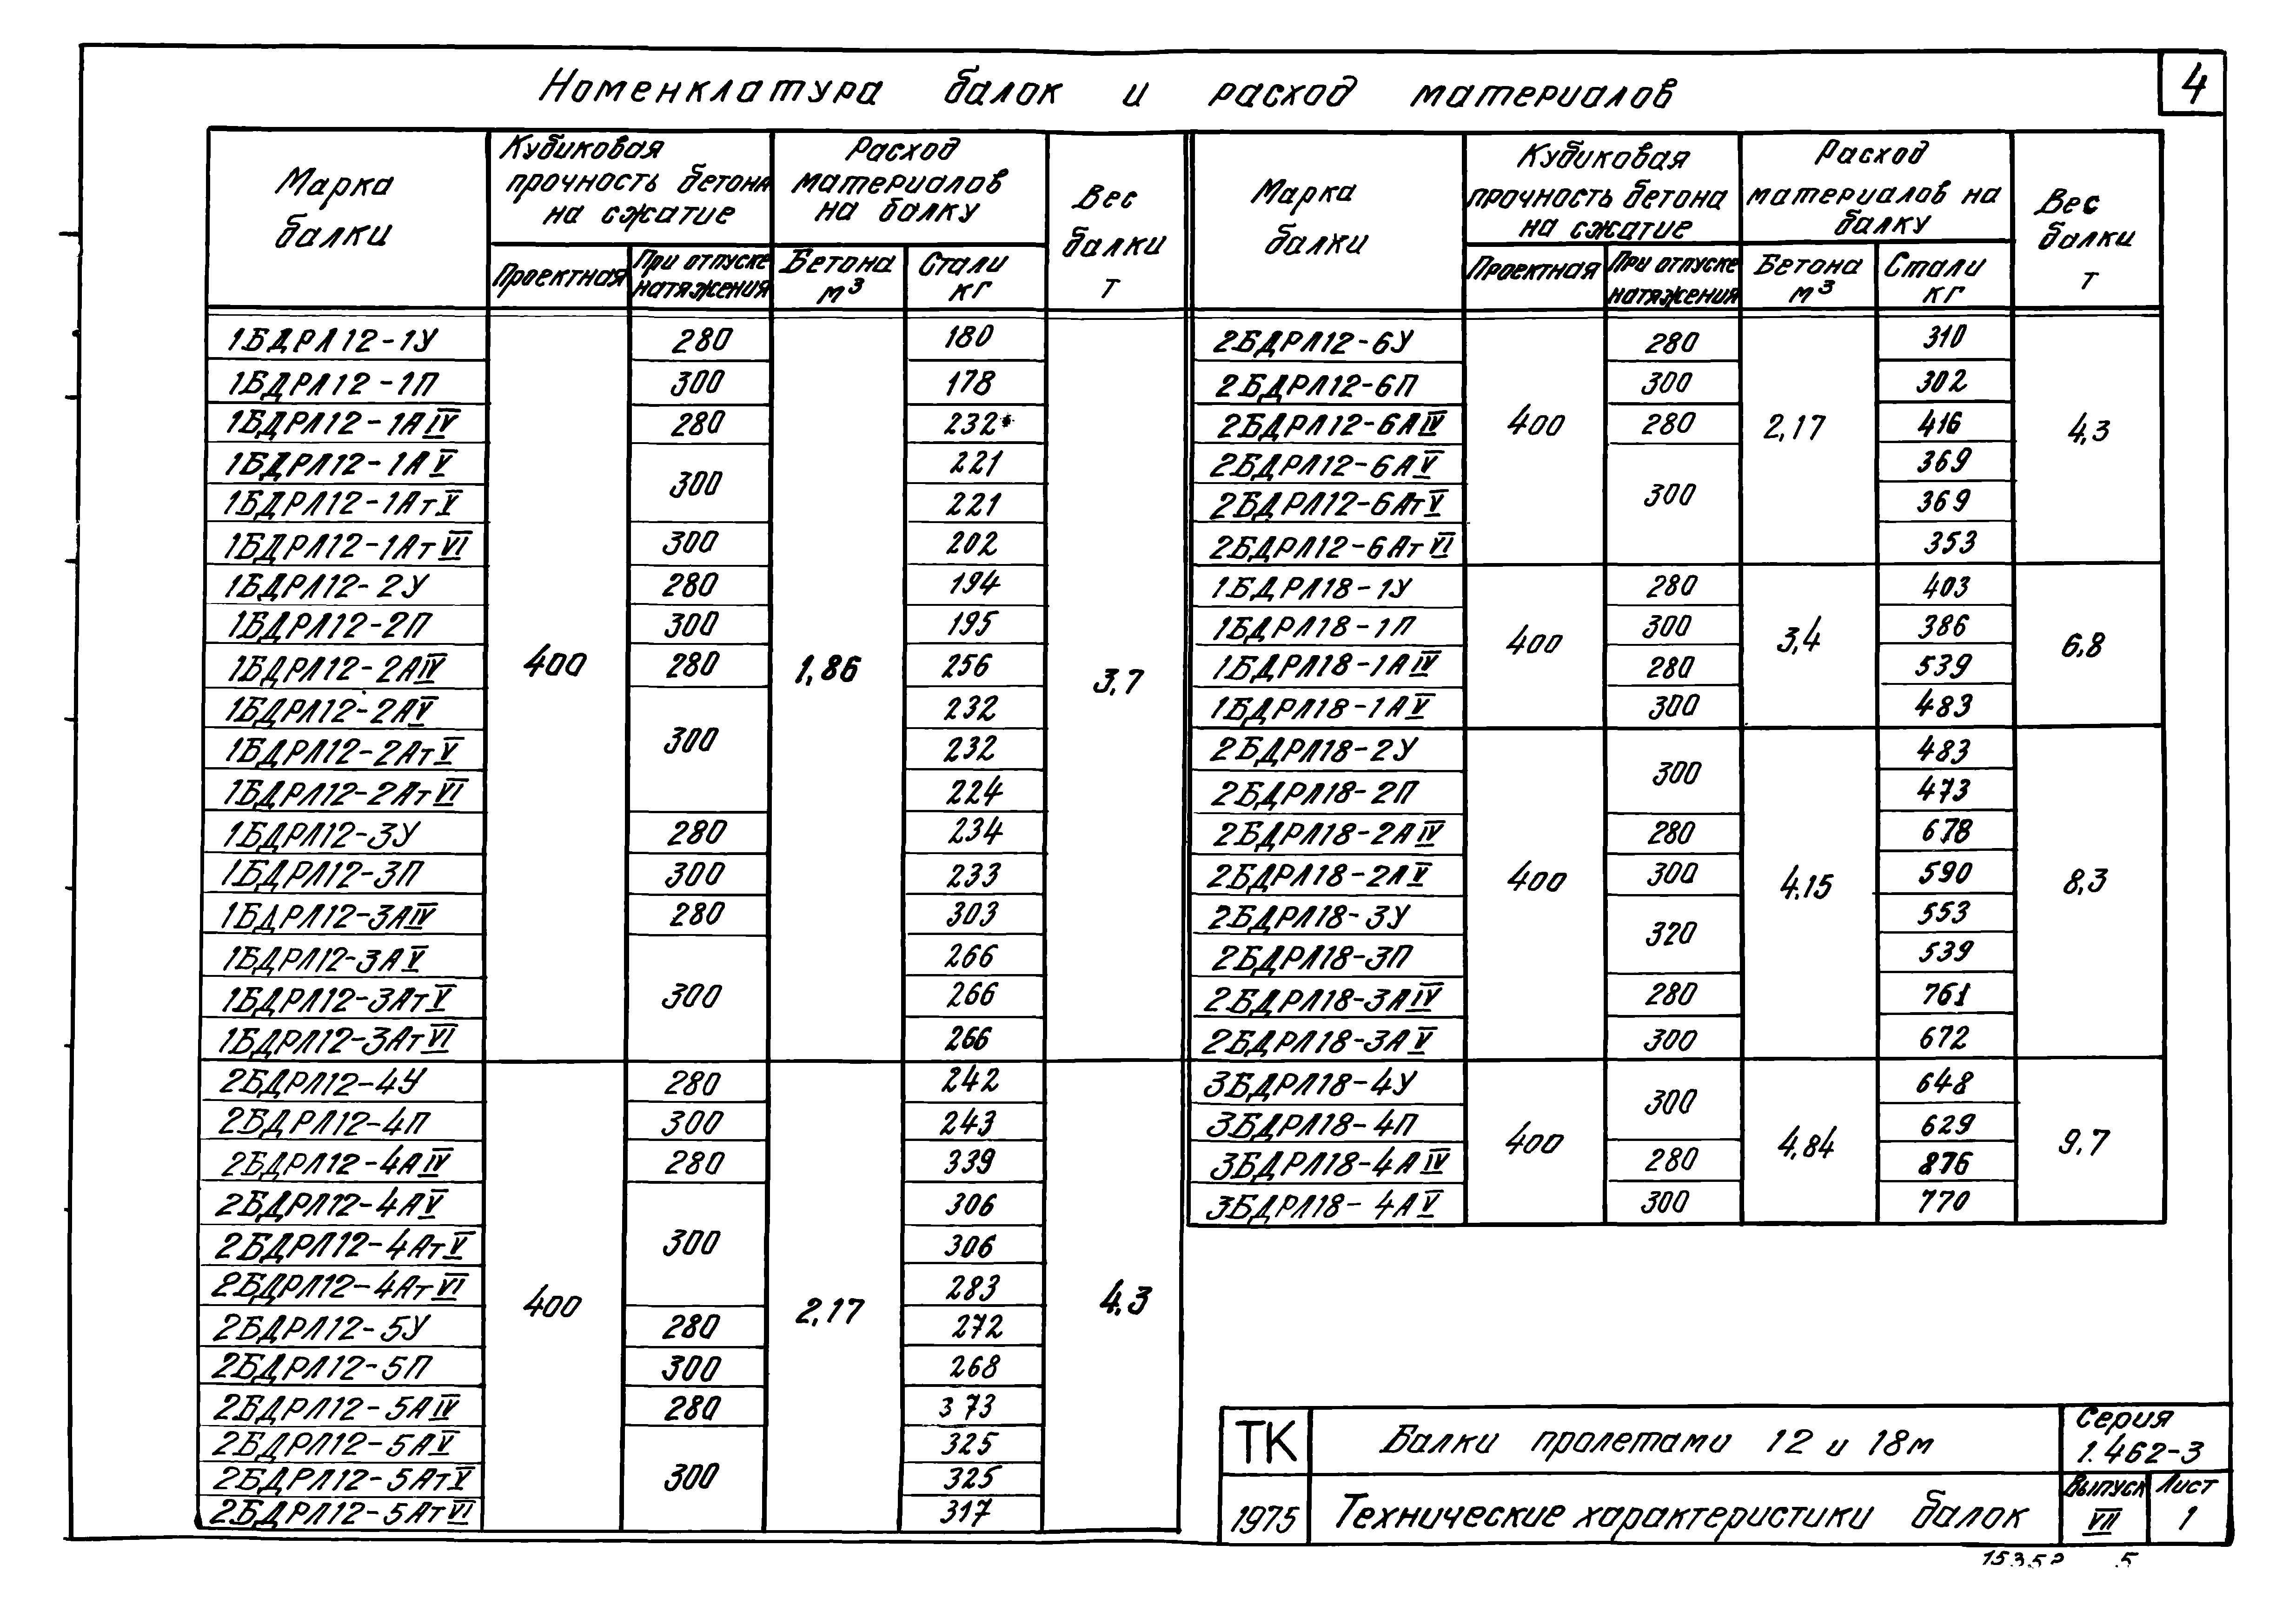 4
Номенклатура балок и расход материалов
Марка балки
Кубиковая прочность бетона на сжатие
Расход материалов на балку
Вес балки т
Марка балки
Кубиковая прочность бетона на сжатие
Расход материалов на балку
Вес балки т
Проектная
При отпуске натяжения
Бетона м³
Стали кг
Проектная
При отпуске натяжения
Бетона м³
Стали кг
1БДРЛ12-1У 280 180
1БДРЛ12-1П 300 178
1БДРЛ12-1АIV 280 232*
1БДРЛ12-1АV 300 221
1БДРЛ12-1АтV 221
1БДРЛ12-1АтVI 300 202
1БДРЛ12-2У 280 194
1БДРЛ12-2П 300 195
1БДРЛ12-2АIV 400 280 1,86 256 3,7
1БДРЛ12-2АV 232
1БДРЛ12-2АтV 300 232
1БДРЛ12-2АтVI 224
1БДРЛ12-3У 280 234
1БДРЛ12-3П 300 233
1БДРЛ12-3АIV 280 303
1БДРЛ12-3АV 266
1БДРЛ12-3АтV 300 266
1БДРЛ12-3АтVI 266
2БДРЛ12-4У 280 242
2БДРЛ12-4П 300 243
2БДРЛ12-4АIV 280 339
2БДРЛ12-4АV 306
2БДРЛ12-4АтV 300 306
2БДРЛ12-4АтVI 400 2,17 283 4,3
2БДРЛ12-5У 280 272
2БДРЛ12-5П 300 268
2БДРЛ12-5АIV 280 373
2БДРЛ12-5АV 325
2БДРЛ12-5АтV 300 325
2БДРЛ12-5АтVI 317
2БДРЛ12-6У 280 310
2БДРЛ12-6П 300 302
2БДРЛ12-6АIV 400 280 2,17 416 4,3
2БДРЛ12-6АV 369
2БДРЛ12-6АтV 300 369
2БДРЛ12-6АтVI 353
1БДРЛ18-1У 280 403
1БДРЛ18-1П 400 300 3,4 386 6,8
1БДРЛ18-1АIV 280 539
1БДРЛ18-1АV 300 483
2БДРЛ18-2У 300 483
2БДРЛ18-2П 473
2БДРЛ18-2АIV 280 678
2БДРЛ18-2АV 400 300 4,15 590 8,3
2БДРЛ18-3У 320 553
2БДРЛ18-3П 539
2БДРЛ18-3АIV 280 761
2БДРЛ18-3АV 300 672
3БДРЛ18-4У 300 648
3БДРЛ18-4П 400 4,84 629 9,7
3БДРЛ18-4АIV 280 876
3БДРЛ18-4АV 300 770
ТК
Балки пролетами 12 и 18м
Серия
1.462-3
1975
Технические характеристики балок
Выпуск VII
Лист 1
15352 5